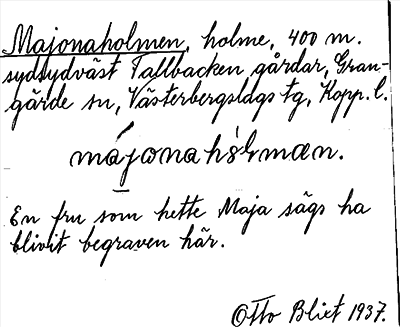 Majonaholmen, holme, 400 m.
sydsydväst Tallbacken gårdar, Gran-
gärde sn, Västerbergslags tg, Kopp. l.
En fru som hette Maja sägs ha
blivit begraven här.
Otto Blixt 1937.